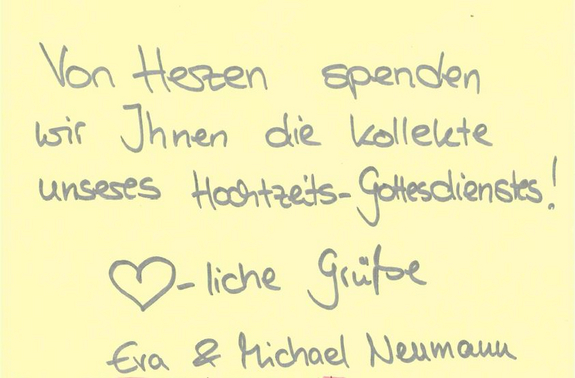 Von Herzen spenden
wir Ihnen die Kollekte
unseres Hochtzeits-Gottesdienstes!
♡-liche Grüße
Eva & Michael Neumann